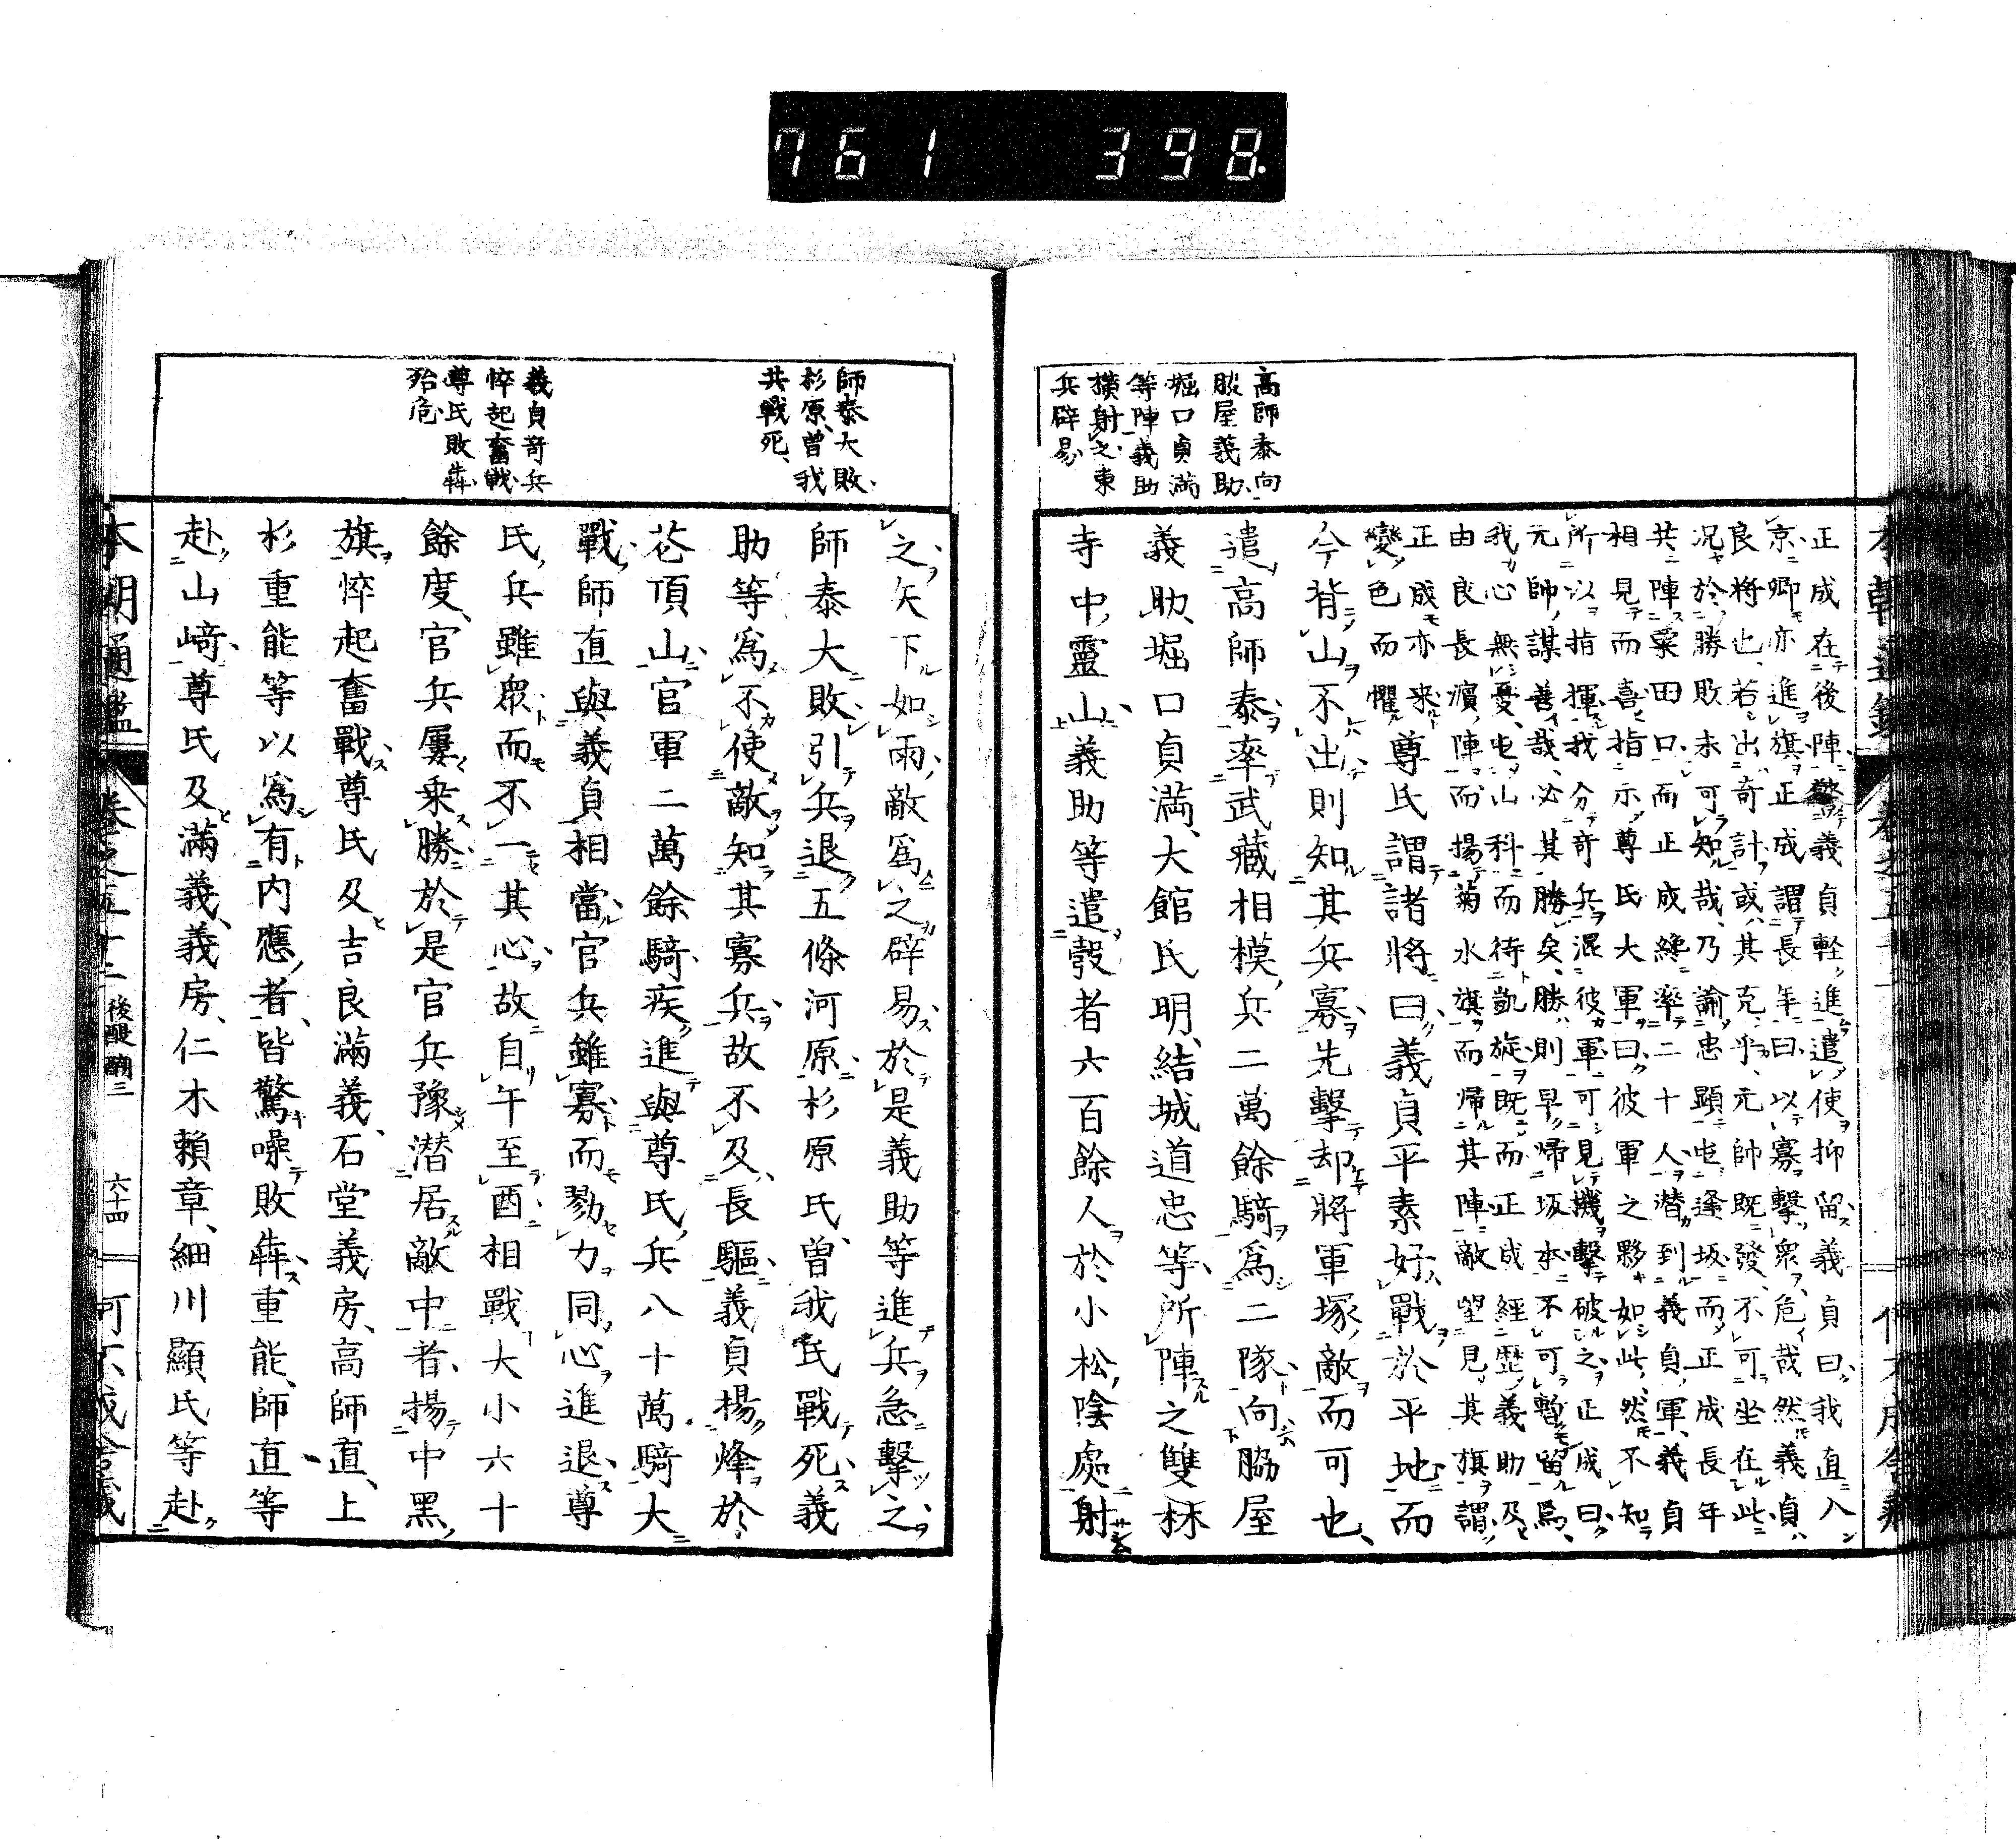 761 398
高師泰向
脇屋義助
堀口貞滿
等陣義助
横射之東
兵辟易
正成在後陣驚義貞軽進遣使抑留義貞曰我直入
京卿亦進旗正成謂長年曰以寡擊衆危哉然義貞
良将也若出奇計或其克乎元帥既發不可坐在此
况於勝敗未可知哉乃諭忠顯屯逢坂而正成長年
共陣粟田口而正成纔率二十人潜到義貞軍義貞
相見而喜指示尊氏大軍曰彼軍之夥如此然不知
所以指揮我分奇兵混彼軍可見機擊破之正成曰
元帥謀善哉必其勝矣勝則早帰坂本不可暫留焉
我心無憂屯山科而待凱旋既而正成經歴義助及
由良長濵陣而揚菊水旗而帰其陣敵望見其旗謂
正成亦来尊氏謂諸將曰義貞平素好戰於平地而
變色而懼
今背山不出則知其兵寡先擊却將軍塚敵而可也
遣高師泰率武藏相模兵二萬餘騎爲二隊向脇屋
義助堀口貞滿大館氏明結城道忠等所陣之雙林
寺中靈山義助等遣彀者六百餘人於小松陰處射
師泰大敗
杉原曽我
共戰死
義貞奇兵
悴起奮戰
尊氏敗犇
殆危
之矢下如雨敵爲之辟易於是義助等進兵急擊之
師泰大敗引兵退五條河原杉原氏曽我氏戰死義
助等爲不使敵知其寡兵故不及長驅義貞揚烽於
花頂山官軍二萬餘騎疾進與尊氏兵八十萬騎大
戰師直與義貞相當官兵雖寡而勠力同心進退尊
氏兵雖衆而不一其心故自午至酉相戰大小六十
餘度官兵屢乗勝於是官兵豫潜居敵中者揚中黑
旗悴起奮戰尊氏及吉良滿義石堂義房高師直上
杉重能等以爲有内應者皆驚噪敗犇重能師直等
赴山﨑尊氏及滿義義房仁木賴章細川顯氏等赴
本朝通鑑 卷之五十二 後醍醐三 六十四